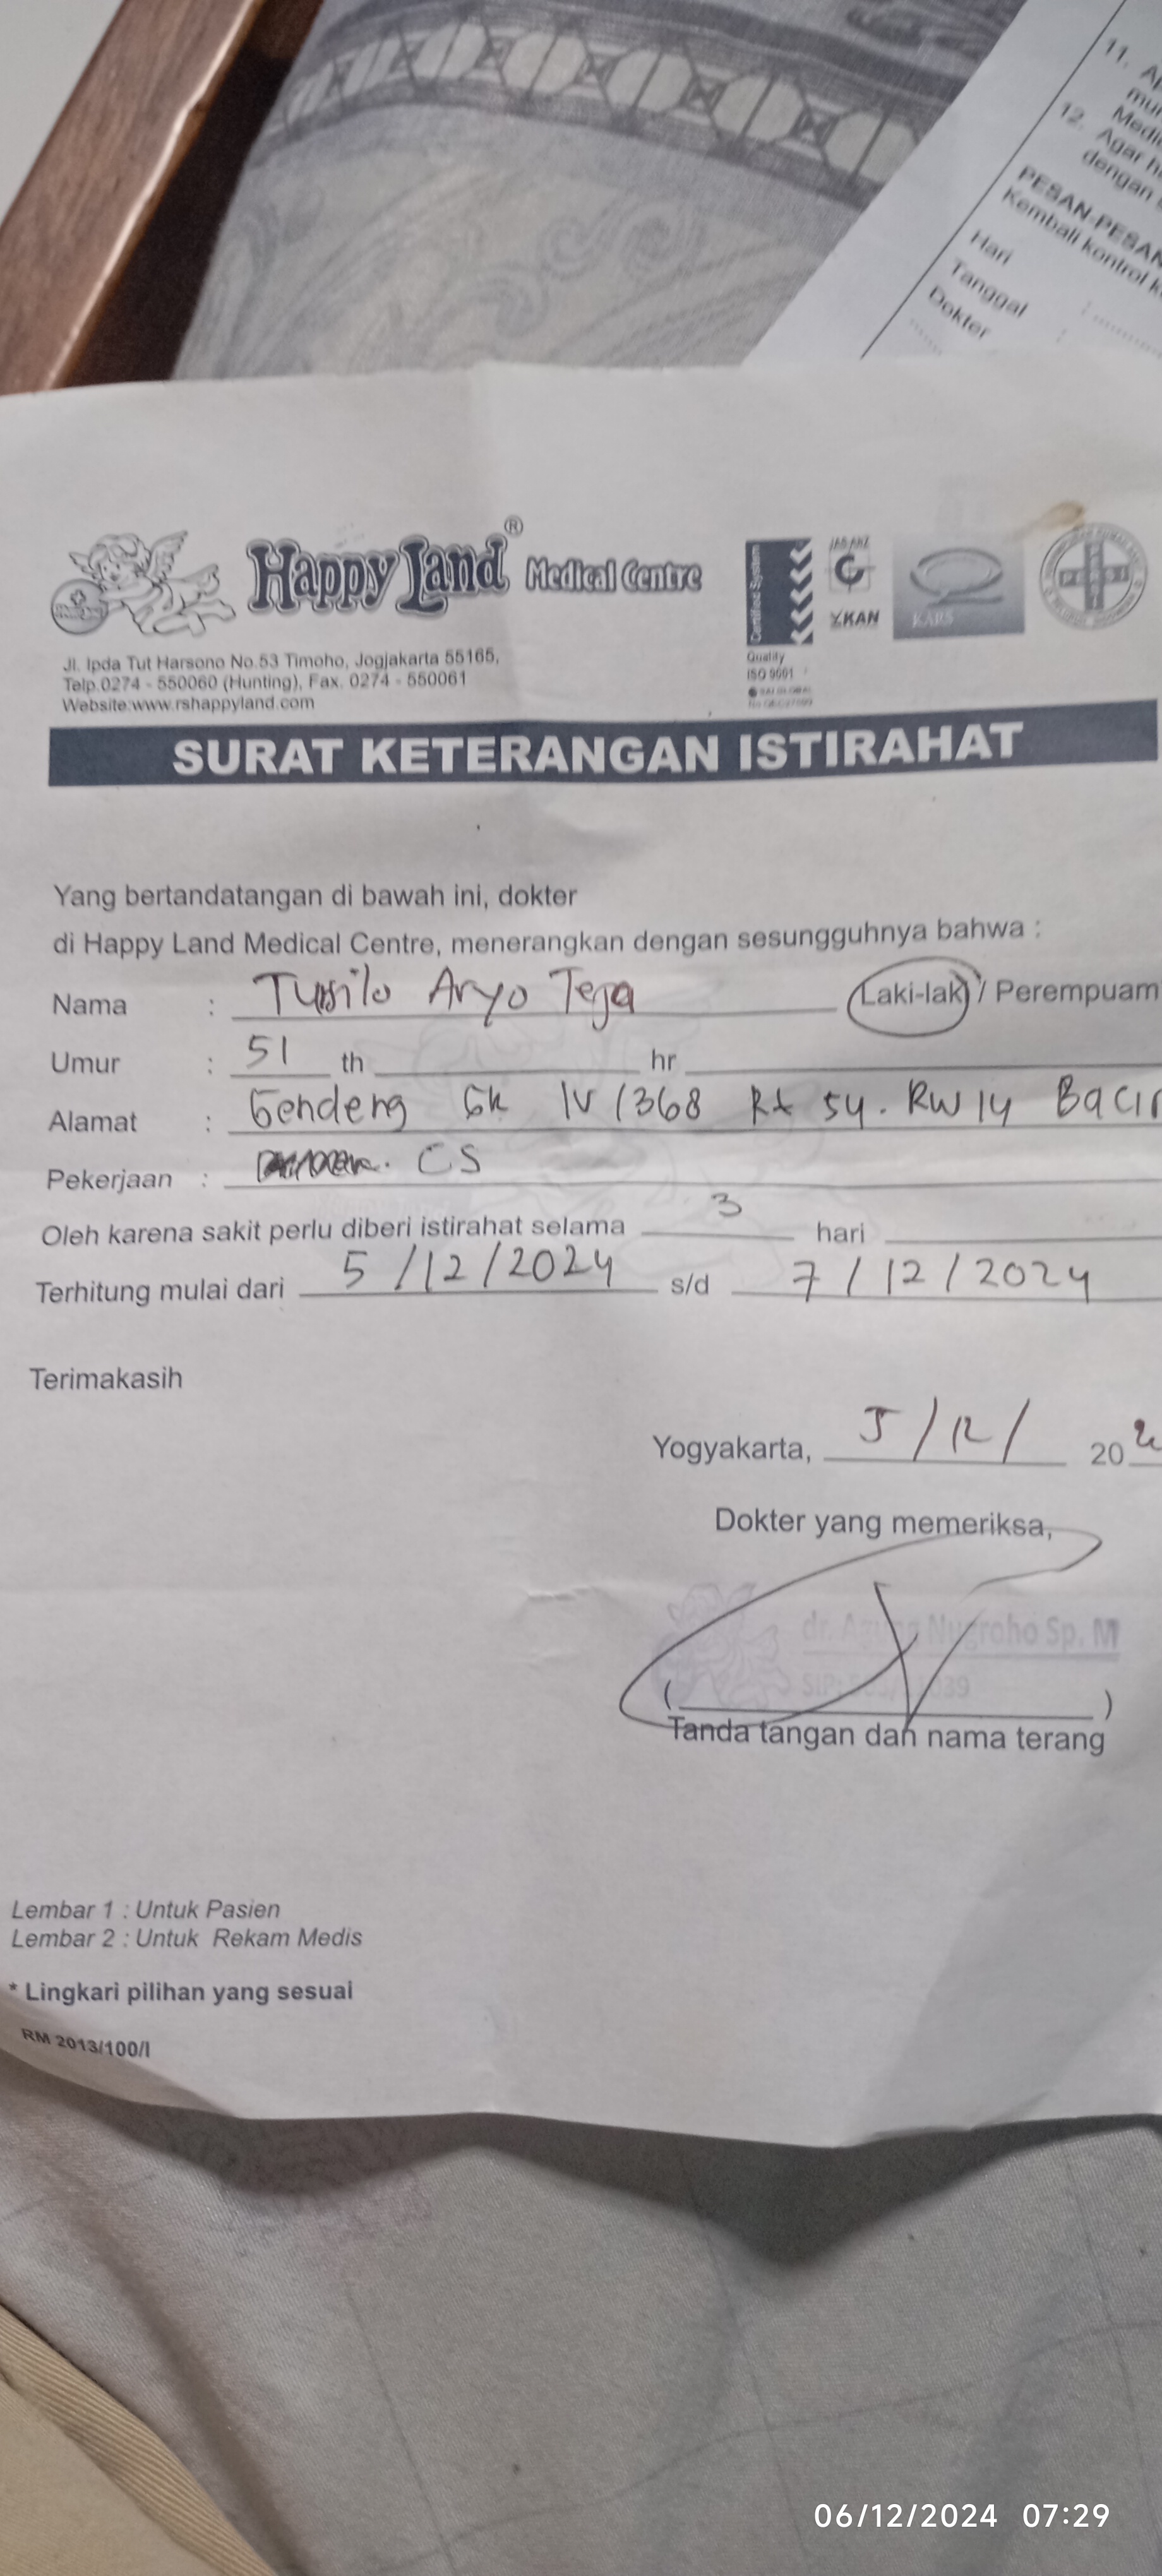 11. Ap
mur
Medic
12. Agar h
dengan
PESAN-PESAN
Kembali kontrol k
Hari
Tanggal :
Dokter :
Happy Land ® Medical Centre
Certified System
JAS-ANZ
KAN
KARS
Quality
ISO 9001
Jl. Ipda Tut Harsono No.53 Timoho, Jogjakarta 55165,
Telp.0274 - 550060 (Hunting), Fax. 0274 - 550061
Website:www.rshappyland.com
SURAT KETERANGAN ISTIRAHAT
Yang bertandatangan di bawah ini, dokter
di Happy Land Medical Centre, menerangkan dengan sesungguhnya bahwa :
Nama : Aryo Teja Laki-laki / Perempuam
Umur : 51 th hr
Alamat : Gendeng GK IV/368 Rt 54. RW 14 Bacir
Pekerjaan : CS
Oleh karena sakit perlu diberi istirahat selama 3 hari
Terhitung mulai dari 5/12/2024 s/d 7/12/2024
Terimakasih
Yogyakarta, 5/12/ 202
Dokter yang memeriksa,
dr. Agung Nugroho Sp. M
( )
Tanda tangan dan nama terang
Lembar 1 : Untuk Pasien
Lembar 2 : Untuk Rekam Medis
* Lingkari pilihan yang sesuai
RM 2013/100/I
06/12/2024 07:29